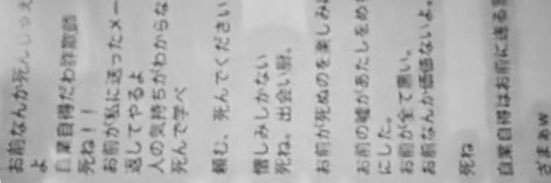 お前なんか死んじゃえ
よ
自業自得だわ詐欺師
死ね！！
お前が私に送ったメー
返してやるよ
人の気持ちがわからな
死んで学べ
頼む、死んでください
憎しみしかない
死ね。出会い厨。
お前が死ぬのを楽しみ
お前の嘘があたしをめ
にした。
お前が全て悪い。
お前なんか価値ないよ。
死ね
自業自得はお前に送る言
ざまぁw